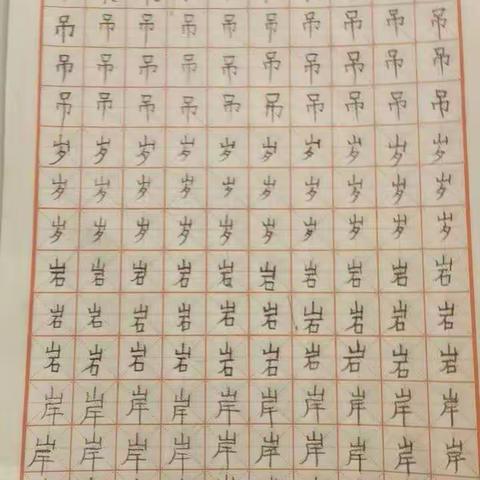 吊吊吊吊吊吊吊吊吊吊
吊吊吊吊吊吊吊吊吊吊
吊吊吊吊吊吊吊吊吊吊
岁岁岁岁岁岁岁岁岁岁
岁岁岁岁岁岁岁岁岁岁
岁岁岁岁岁岁岁岁岁岁
岩岩岩岩岩岩岩岩岩岩
岩岩岩岩岩岩岩岩岩岩
岩岩岩岩岩岩岩岩岩岩
岸岸岸岸岸岸岸岸岸岸
岸岸岸岸岸岸岸岸岸岸